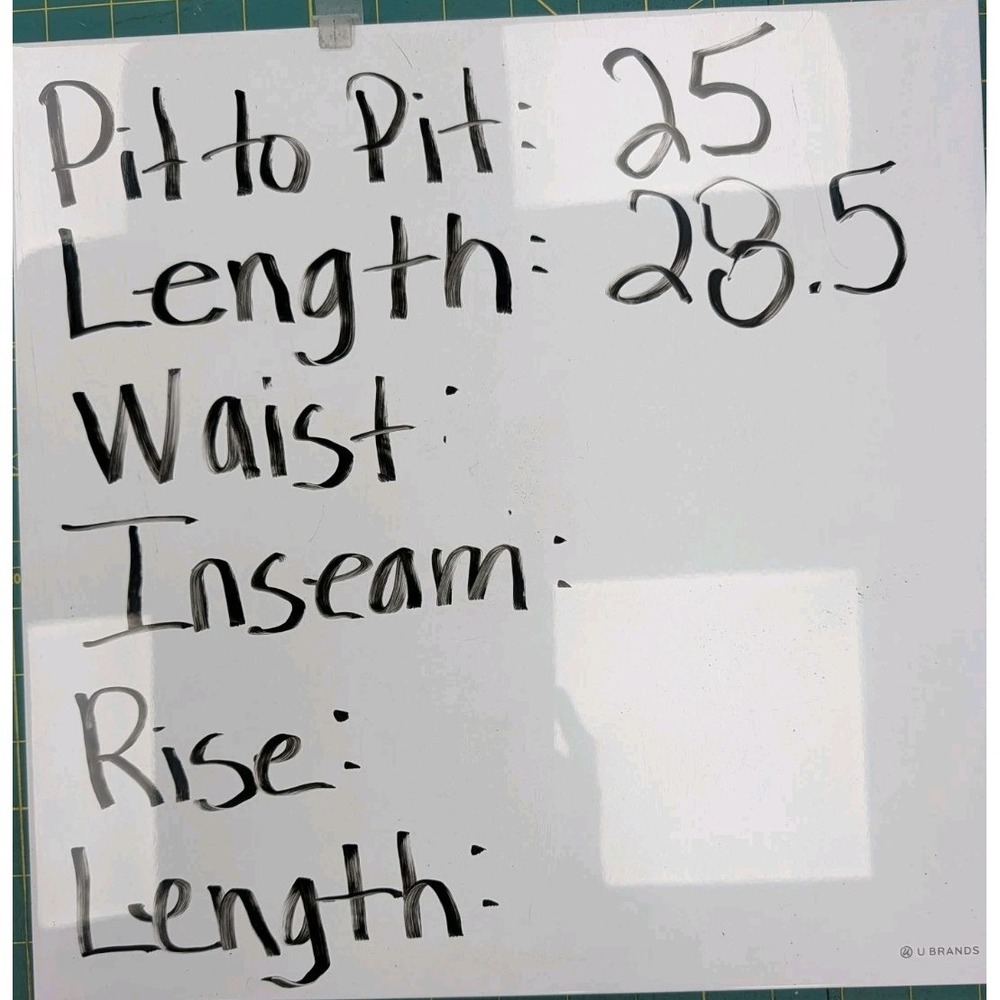 Pit to Pit: 25
Length: 28.5
Waist:
Inseam:
Rise:
Length:
U BRANDS